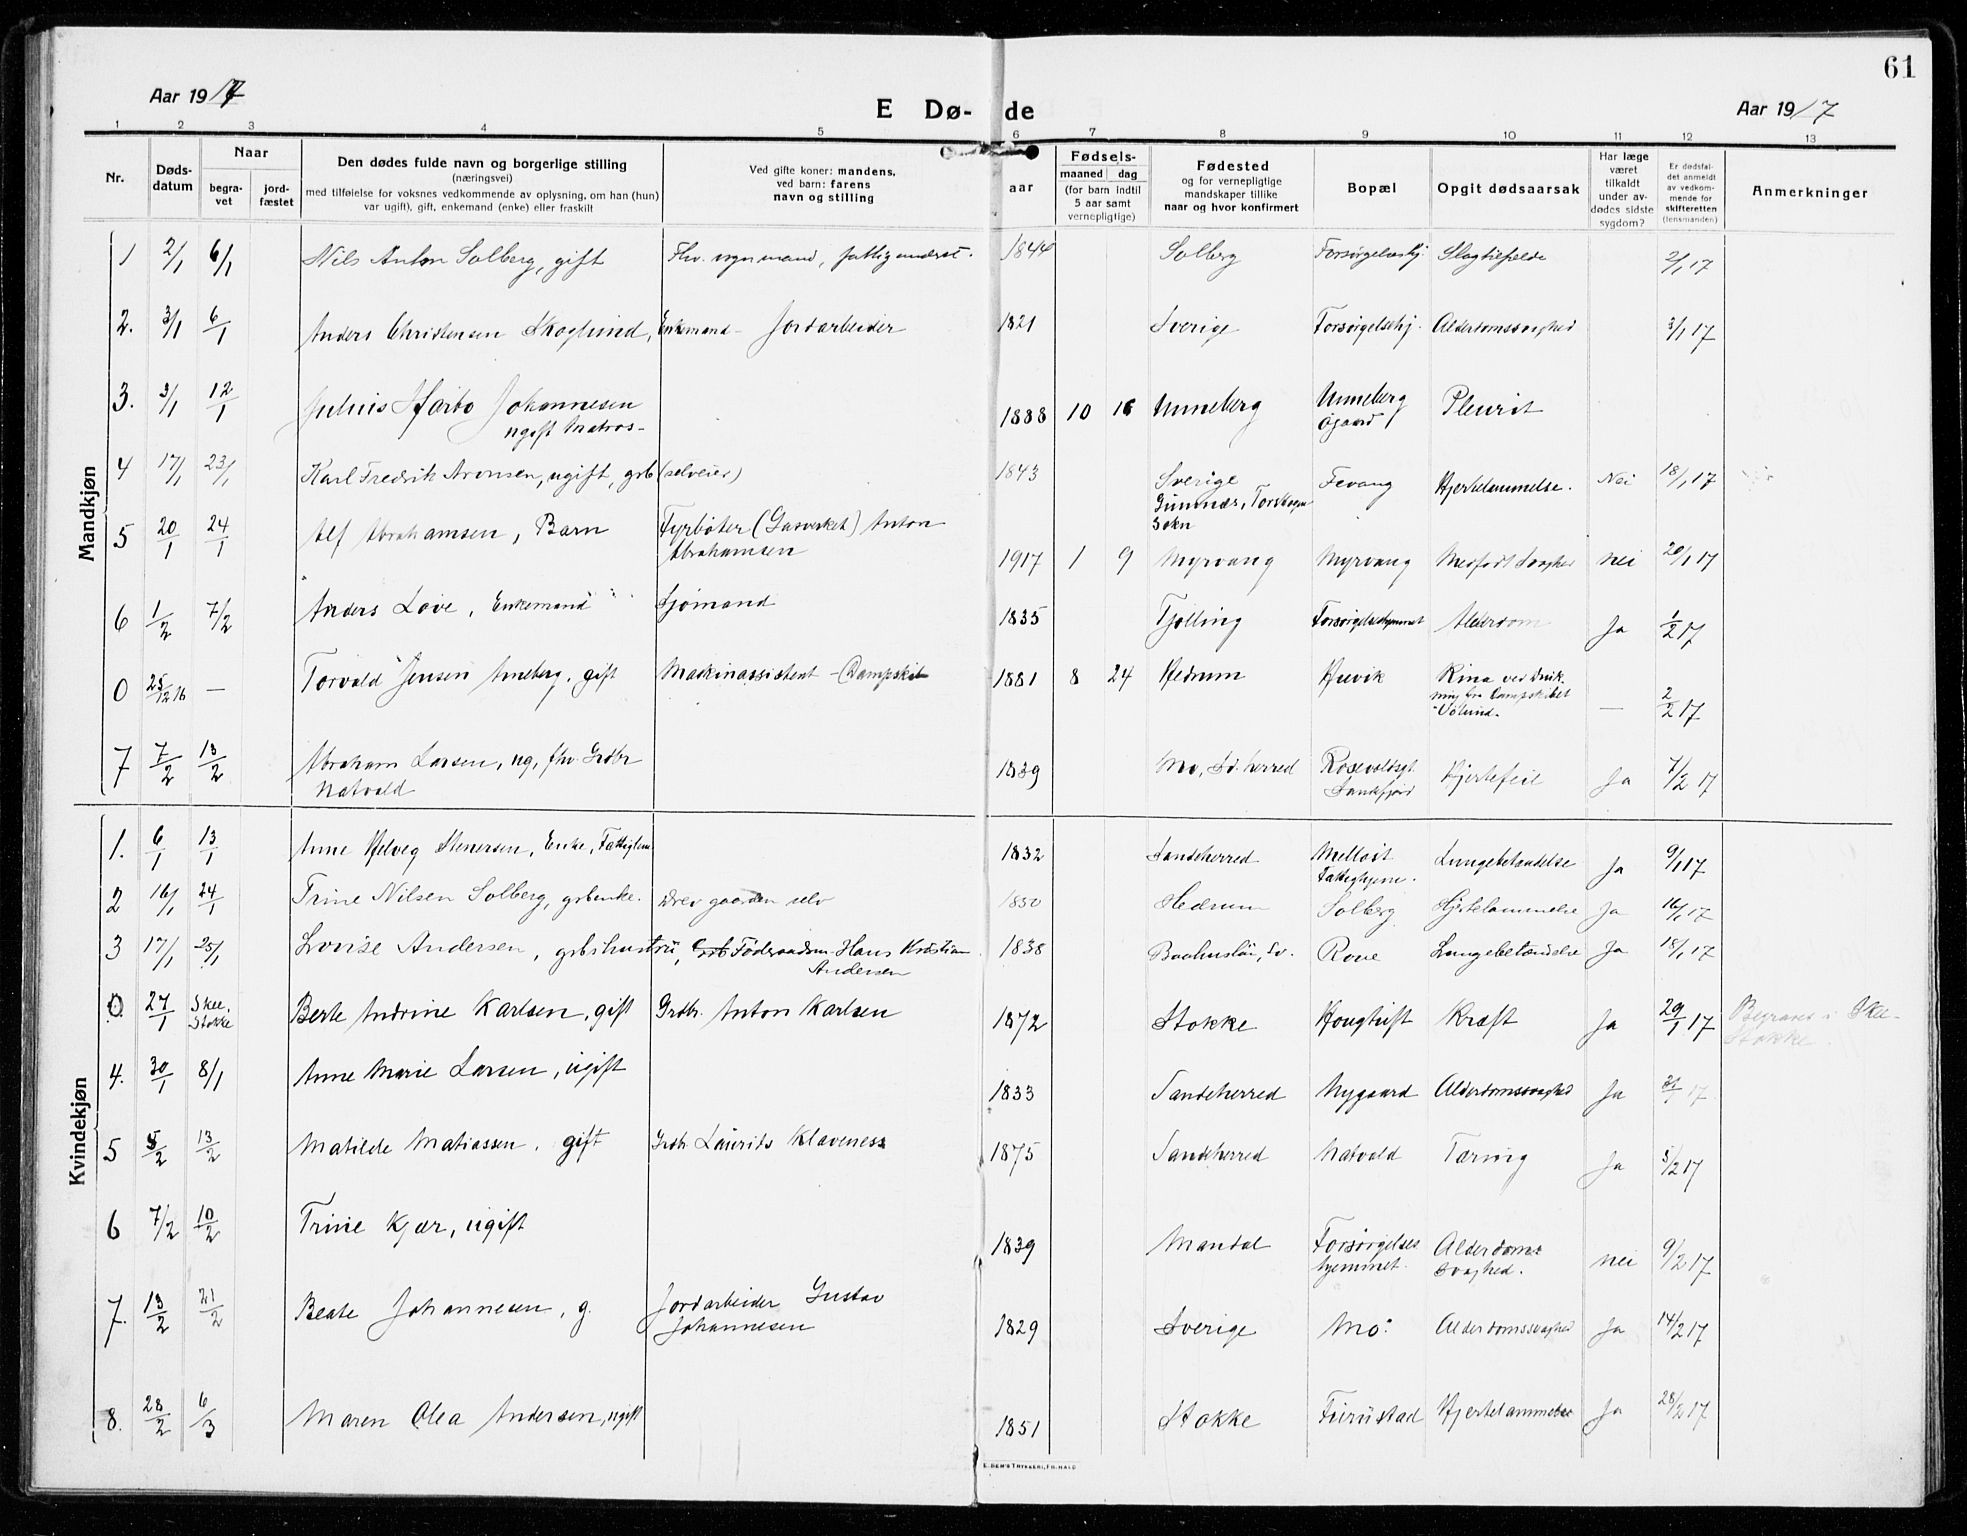 61
Aar 1917
E Dø-de
Aar 1917
1 2 3 4 5 6 7 8 9 10 11 12 13
Nr.
Døds-datum
Naar
begra-vet
jord-fæstet
Den dødes fulde navn og borgerlige stilling
(næringsvei)
med tilføielse for voksnes vedkommende av oplysning, om han (hun)
var ugift), gift, enkemand (enke) eller fraskilt
Ved gifte koner: mandens,
ved barn: farens
navn og stilling
aar
Fødsels-
maaned dag
(for barn indtil
5 aar samt
vernepligtige)
Fødested
og for vernepligtige
mandskaper tillike
naar og hvor konfirmert
Bopæl
Opgit dødsaarsak
Har læge
været
tilkaldt
under av-
dødes sidste
sygdom?
Er dødsfal-
det anmeldt
av vedkom-
mende for
skifteretten
(lensmanden)
Anmerkninger
Mandkjøn
1 2/1 6/1 Nils Anton Solberg, gift Fhv. 1844 Solberg Forsørgelseshj. Slagtilfelde 2/1 17
2. 3/1 6/1 Anders Christensen Skoglund, Enkemand - Jordarbeider 1821 Sverige Forsørgelsehj. Alderdomssvaghed 3/1 17
3. 3/1 12/1 Julius Harbo Johannesen 1888 10 16 Unneberg Unneberg Pleurit
ugift Matros- Øgaard
4 17/1 23/1 Karl Fredrik Aronsen, ugift, grb (selveier) 1843 Sverige Fevang Hjertelammelse. Nei 18/1 17
Sokn
5 20/1 24/1 Alf Abrahamsen, Barn Fyrbøter (Gasverket) Anton
Abrahamsen 1917 1 9 Myrvang Myrvang Medfødt Svaghed nei 20/1 17
6 1/2 7/2 Anders Løve, Enkemand Sjømand 1835 Tjølling Forsørgelseshjemmet Alderdom Ja 1/2 17
0 25/12 16 — Torvald Jensen Anneberg, gift Maskinassistent - (Dampskib 1881 8 24 Hedrum Hvevik — 2/2 17
ning fra Dampskibet
"Vølund"
7 7/2 13/2 Abraham Larsen, ug, fhv. Grdbr 1839 Mo, Sd. herred Rosevoldsgt. Hjertefeil Ja 7/2 17
Natvald Sandefjord
Kvindekjøn
1. 6/1 13/1 Anne Helveg Stenersen, Enke, Fattiglem 1832 Sandeherred Lungebetændelse Ja 9/1 17
Fattighjem.
2 16/1 24/1 Trine Nilsen Solberg, grbenke. Drev gaarden selv 1850 Hedrum Solberg Hjertelammelse Ja 16/1 17
3 17/1 25/1 Lovise Andersen, grbshustru, Grb Føderaadsm. Hans Kristian 1838 Baahuslän, Sv. Rove Lungebetændelse Ja 18/1 17
Andersen
0. 27/1 Skee. Berte Andrine Karlsen, gift Grdbr. Anton Karlsen 1872 Stokke Hougtuft Kræft Ja 29/1 17 Begravet i Skee-
Stokke Stokke.
4. 30/1 8/1 Anne Marie Larsen, ugift 1833 Sandeherred Nygaard Alderdomssvaghed Ja 31/1 17
5 5/2 13/2 Matilde Matiassen, gift Grdbr. Laurits Klaveness 1875 Sandeherred Natvald Tæring Ja 5/2 17
6 7/2 10/2 Trine Kjær, ugift 1839 Mandal Forsørgelses Alderdoms nei 9/2 17
hjemmet. svaghed.
7. 13/2 21/2 Beate Johannesen, g. Jordarbeider Gustav 1829 Sverige Mo. Alderdomssvaghed Ja 14/2 17
Johannesen
8. 28/2 6/3 Maren Olea Andersen, ugift 1851 Stokke Furustad Hjertelammelse Ja 28/2 17
E. SEM'S TRYKKERI, FR.HALD